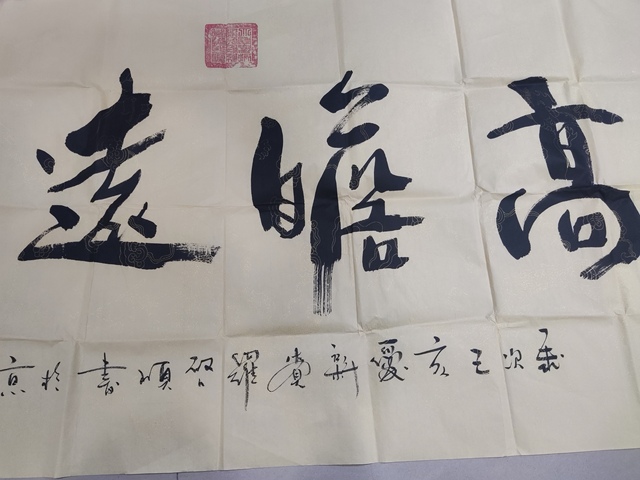 高瞻遠
歲次己亥愛新覺羅啓頌書於京